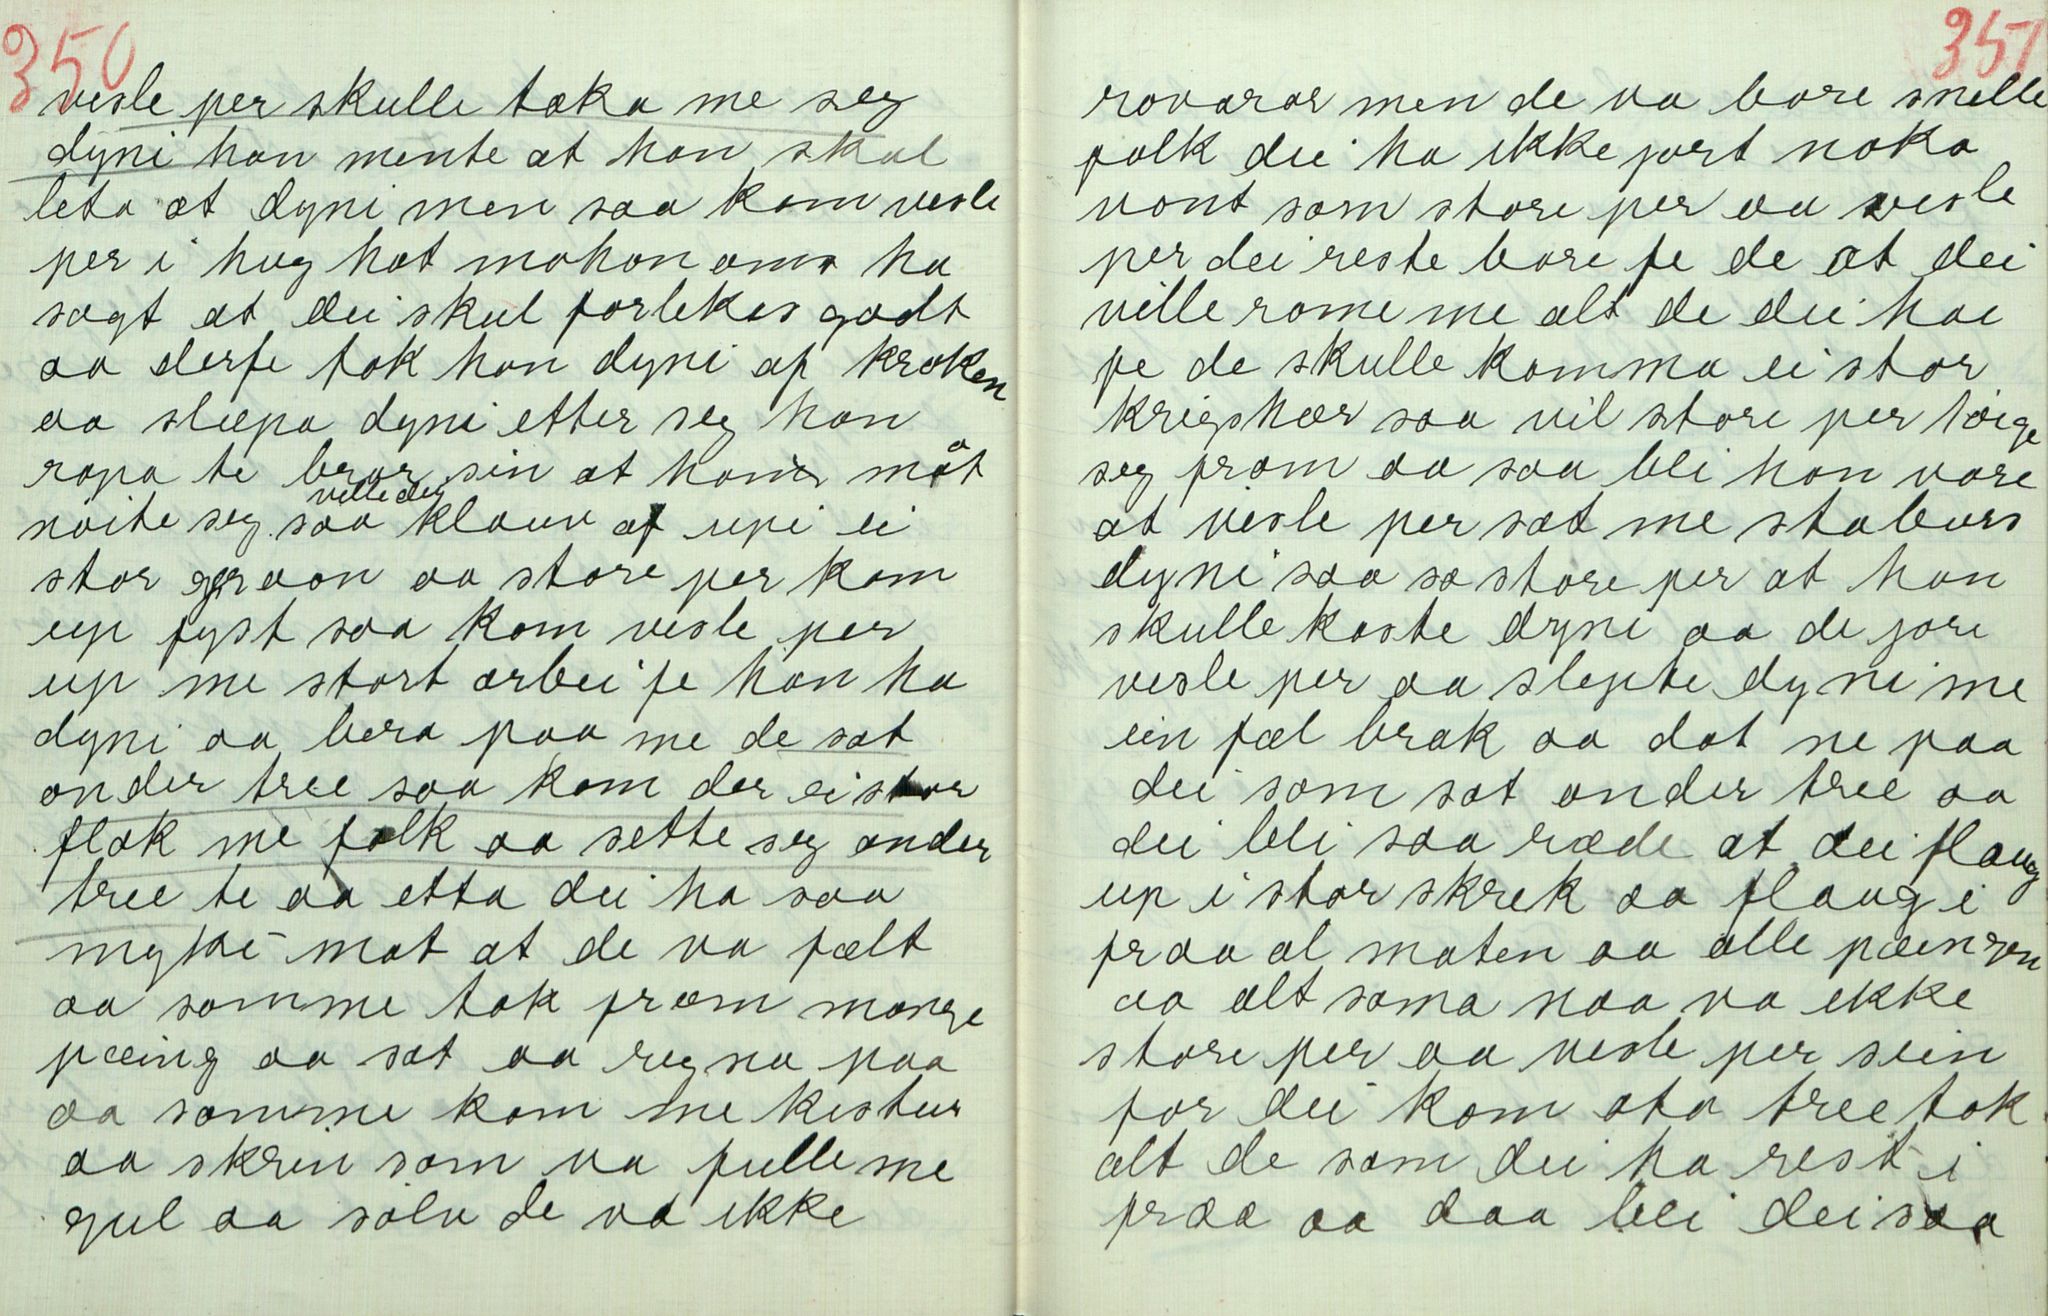 350
vesle per skulle taka me seg
dyni han mente at han skul
leta at dyni men saa kom vesle
per i hug hat mohonoms ha
sagt at dei skul forlekes godt
aa derfe tok han dyni af kroken
aa slæpa dyni etter seg han
ropa te bror sin at han måt
nöite seg saa ville dei klauv af upi ei
stor graan aa store per kom
up fyst saa kom vesle per
up me stort arbei fe han ha
dyni aa bera paa me de sat
onder tree saa kom der ei stor
flok me folk aa sette seg onder
tree te aa etta dei ha saa
mykje mat at de va fælt
aa somme tok fræm monge
pæing aa sat aa regna paa
aa somme kom me kistur
aa skrin som va fulle me
gul aa sölv de va ikke
351
rovarar men de va bare snelle
folk dei ha ikke jort noka
vont som store per aa vesle
per dei reste bare fe de at dei
ville rome me alt de dei hae
fe de skulle komma ei stor
krigshær saa vil store per lægge
seg fram aa saa blei han vare
at vesle per sat me staburs
dyni saa sa store per at han
skulle kaste dyni aa de jore
vesle per aa slepte dyni me
ein fæl brak aa dat ne paa
dei som sat onder tree aa
dei blei saa ræde at dei flaug
up i stor skrek aa flaug i
fraa al maten aa alle pæingen
aa alt sama naa va ikke
store per aa vesle per sein
for dei kom ata tree tok
alt de som dei ha rest i
fraa aa daa blei dei saa